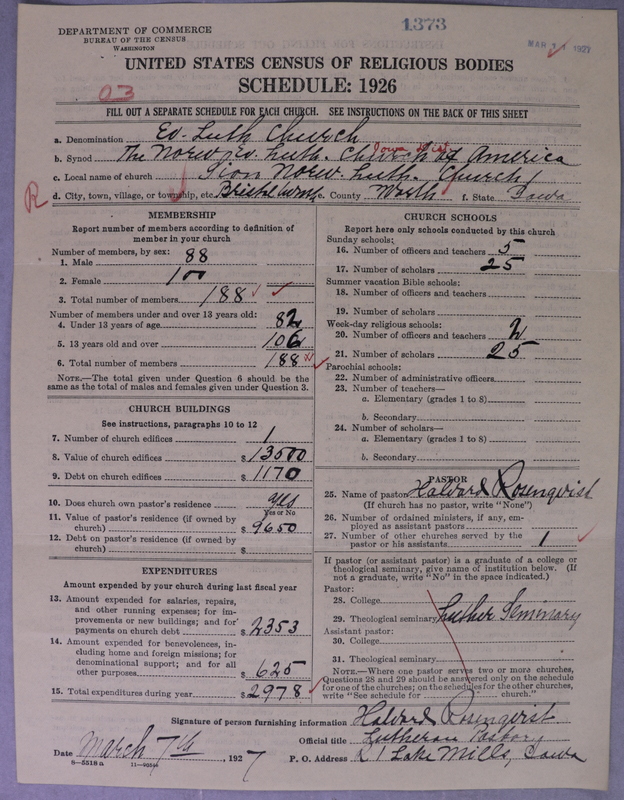 1373
DEPARTMENT OF COMMERCE
BUREAU OF THE CENSUS
WASHINGTON
MAR 1927
UNITED STATES CENSUS OF RELIGIOUS BODIES
SCHEDULE: 1926
03
FILL OUT A SEPARATE SCHEDULE FOR EACH CHURCH. SEE INSTRUCTIONS ON THE BACK OF THIS SHEET
a. Denomination Ev. Luth Church
b. Synod The Norw. Ev. Luth. Church of America
Iowa Dist.
c. Local name of church Sion Norw. Luth. Church
R
d. City, town, village, or township, etc. Bristol twnp e. County Worth f. State Iowa
MEMBERSHIP
Report number of members according to definition of
member in your church
Number of members, by sex:
1. Male 88
2. Female 100
3. Total number of members 188
Number of members under and over 13 years old:
4. Under 13 years of age 82
5. 13 years old and over 106
6. Total number of members 188
NOTE.—The total given under Question 6 should be the
same as the total of males and females given under Question 3.
CHURCH BUILDINGS
See instructions, paragraphs 10 to 12
7. Number of church edifices 1
8. Value of church edifices $13500
9. Debt on church edifices $1170
10. Does church own pastor's residence yes
Yes or No
11. Value of pastor's residence (if owned by
church) $9650
12. Debt on pastor's residence (if owned by
church) $
EXPENDITURES
Amount expended by your church during last fiscal year
13. Amount expended for salaries, repairs,
and other running expenses; for im-
provements or new buildings; and for
payments on church debt $2353
14. Amount expended for benevolences, in-
cluding home and foreign missions; for
denominational support; and for all
other purposes $625
15. Total expenditures during year $2978
CHURCH SCHOOLS
Report here only schools conducted by this church
Sunday schools:
16. Number of officers and teachers 5
17. Number of scholars 25
Summer vacation Bible schools:
18. Number of officers and teachers
19. Number of scholars
Week-day religious schools:
20. Number of officers and teachers 2
21. Number of scholars 25
Parochial schools:
22. Number of administrative officers
23. Number of teachers—
a. Elementary (grades 1 to 8)
b. Secondary
24. Number of scholars—
a. Elementary (grades 1 to 8)
b. Secondary
PASTOR
25. Name of pastor Halvard Rosenqvist
(If church has no pastor, write "None")
26. Number of ordained ministers, if any, em-
ployed as assistant pastors
27. Number of other churches served by the
pastor or his assistants 1
If pastor (or assistant pastor) is a graduate of a college or
theological seminary, give name of institution below. (If
not a graduate, write "No" in the space indicated.)
Pastor:
28. College
29. Theological seminary Luther Seminary
Assistant pastor:
30. College
31. Theological seminary
NOTE.—Where one pastor serves two or more churches,
Questions 28 and 29 should be answered only on the schedule
for one of the churches; on the schedules for the other churches,
write "See schedule for church."
Signature of person furnishing information Halvard Rosenqvist
Official title Lutheran Pastor
Date March 7th, 1927
P. O. Address R 1 Lake Mills, Iowa
8—5518a